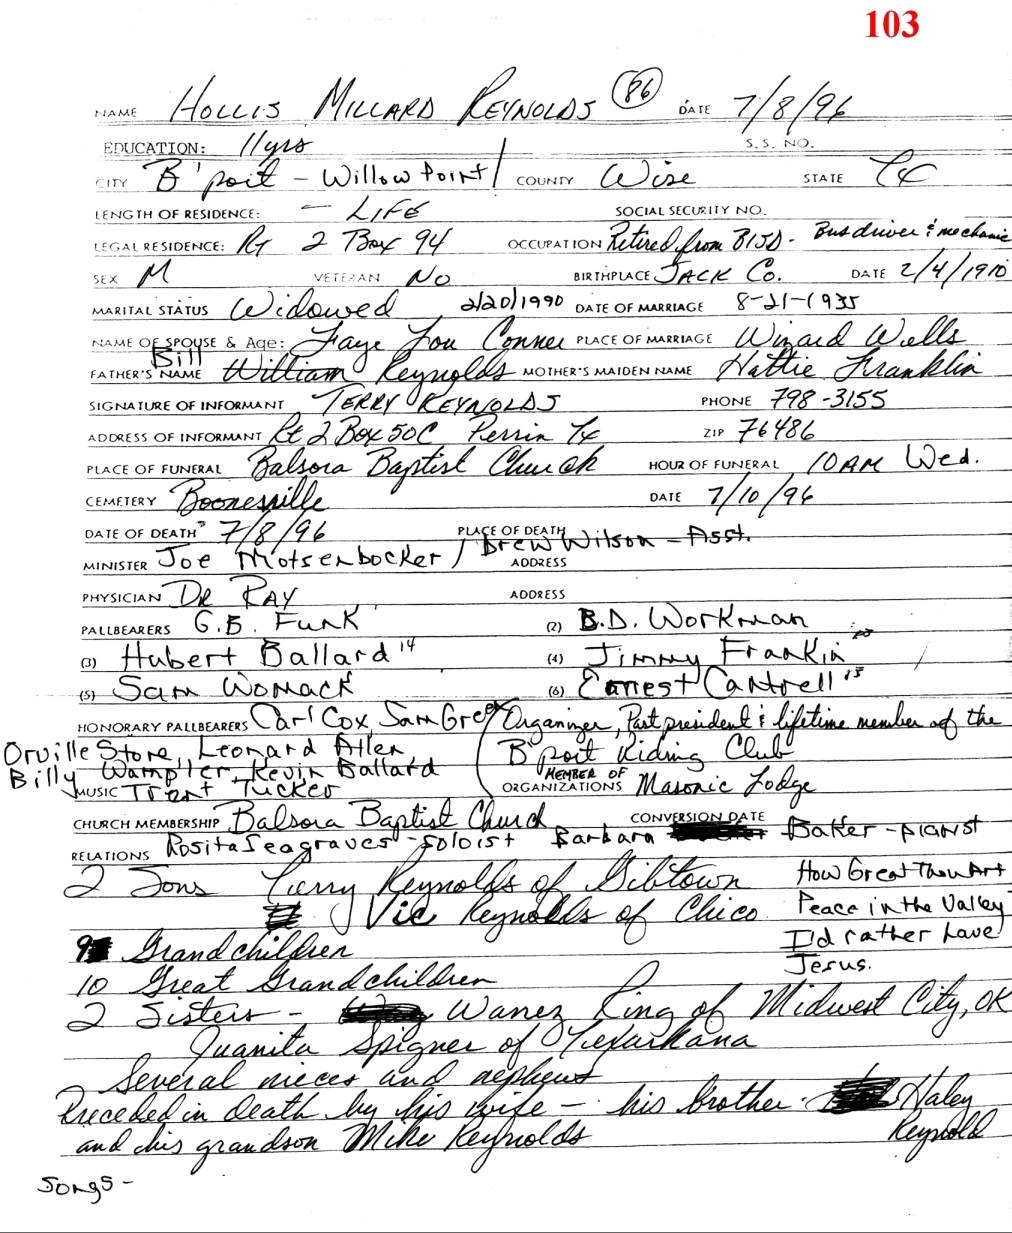 103
NAME HOLLIS MILLARD REYNOLDS (86) DATE 7/8/96
EDUCATION: 11yrs S.S. NO.
CITY B'port - Willow Point / COUNTY Wise STATE Tx
LENGTH OF RESIDENCE: - LIFE SOCIAL SECURITY NO.
LEGAL RESIDENCE: Rt 2 Box 94 OCCUPATION Retired from BISD - Bus driver & mechanic
SEX M VETERAN No BIRTHPLACE JACK Co. DATE 2/4/1910
MARITAL STATUS Widowed 2/20/1990 DATE OF MARRIAGE 8-21-1935
NAME OF SPOUSE & Age: Faye Lou Conner PLACE OF MARRIAGE Wizard Wells
Bill
FATHER'S NAME William Reynolds MOTHER'S MAIDEN NAME Hattie Franklin
SIGNATURE OF INFORMANT TERRY REYNOLDS PHONE 798-3155
ADDRESS OF INFORMANT Rt 2 Box 50C Perrin Tx ZIP 76486
PLACE OF FUNERAL Balsora Baptist Church HOUR OF FUNERAL 10AM Wed.
CEMETERY Boonesville DATE 7/10/96
DATE OF DEATH 7/8/96 PLACE OF DEATH
MINISTER Joe Motsenbocker / Drew Wilson - Asst. ADDRESS
PHYSICIAN DR RAY ADDRESS
PALLBEARERS G.B. Funk (2) B.D. Workman
(3) Hubert Ballard 14 (4) Jimmy Frankin
(5) Sam Womack (6) Earnest Cantrell 15
HONORARY PALLBEARERS Carl Cox, Sam Greg Organizer, Past president & lifetime member of the
Orville Store, Leonard Allen B'port Riding Club
Billy Wampler, Kevin Ballard
MUSIC Trent Tucker MEMBER OF ORGANIZATIONS Masonic Lodge
CHURCH MEMBERSHIP Balsora Baptist Church CONVERSION DATE
RELATIONS Rosita Seagraves - soloist Barbara Baker - pianist
2 Sons Terry Reynolds of Gibtown How Great Thou Art
Vic Reynolds of Chico Peace in the Valley
9 Grandchildren I'd rather have
10 Great Grandchildren Jesus.
2 Sisters - Wanez King of Midwest City, OK
Juanita Spigner of Texarkana
Several nieces and nephews
Preceded in death by his wife - his brother Haley
and his grandson Mike Reynolds Reynold
Songs -